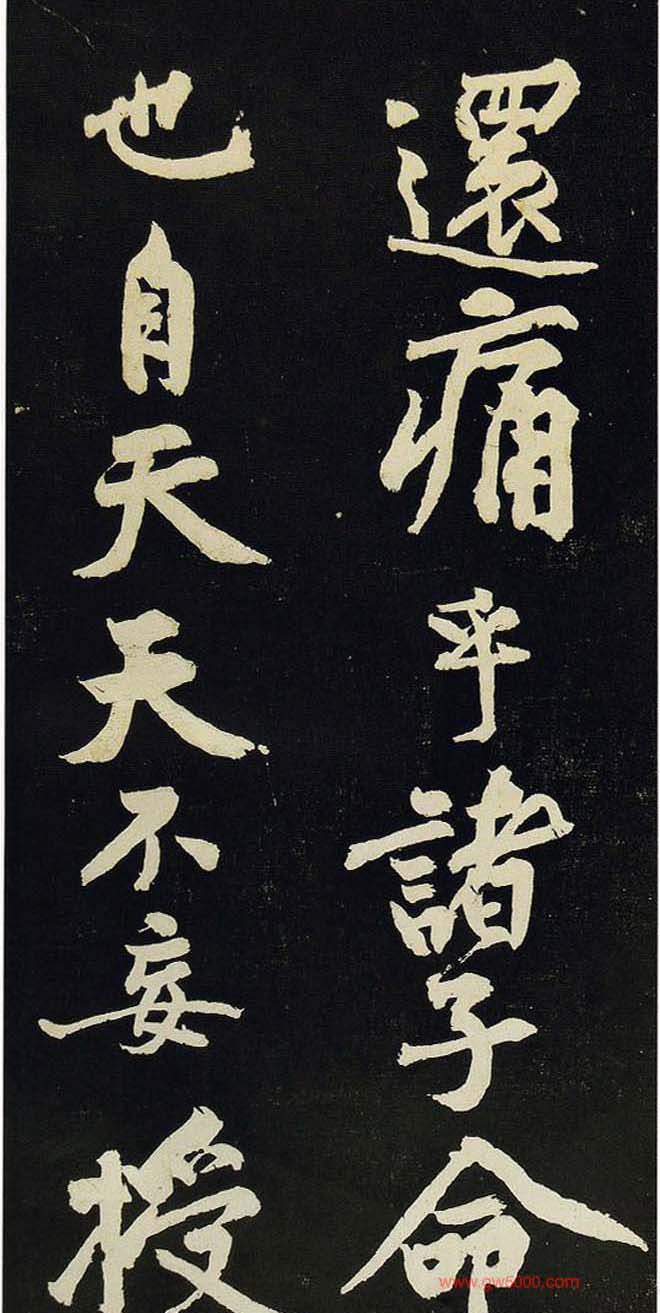 還痛乎諸子命
也自天天不妄授
www.gw5000.com